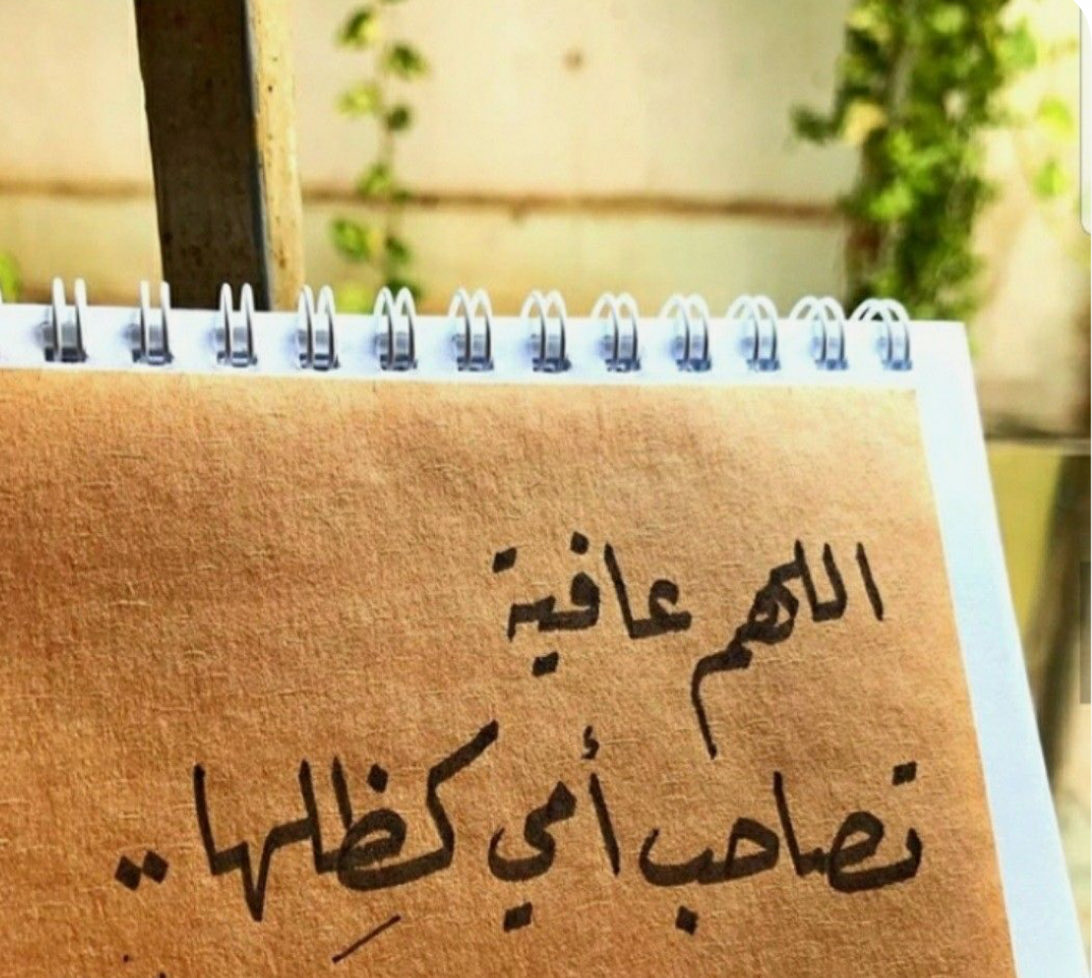 اللهم عافية
تصاحب أمي كظِلها..